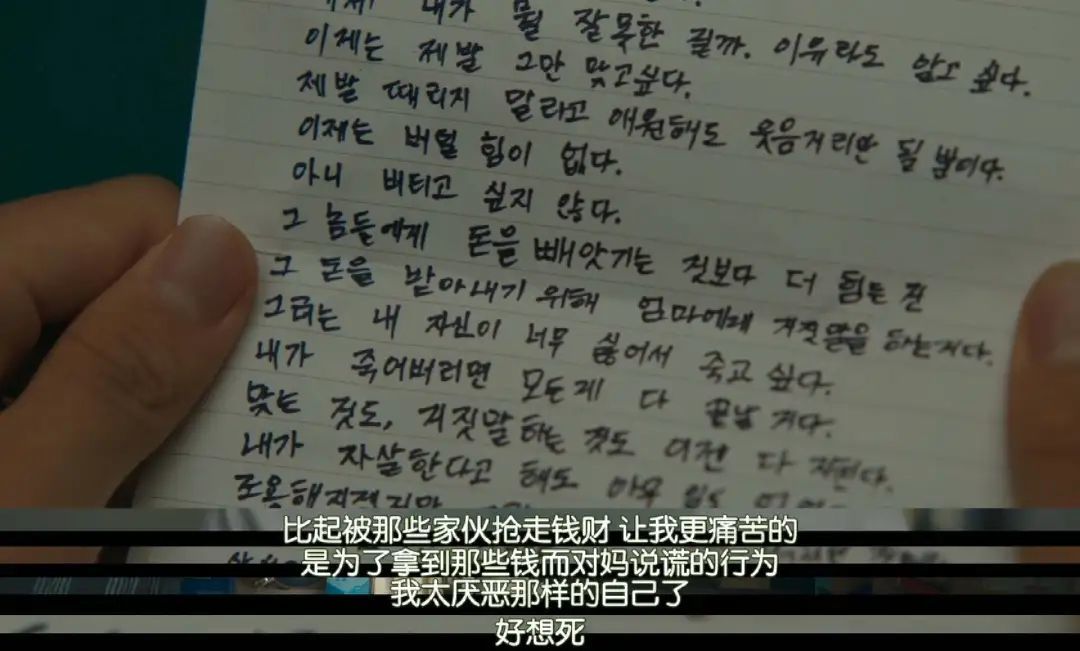 내가 뭘 잘못한 걸까. 이유라도 알고 싶다.
이제는 제발 그만 맞고싶다.
제발 때리지 말라고 애원해도 웃음거리만 될 뿐이다.
이제는 버틸 힘이 없다.
아니 버티고 싶지 않다.
그 놈들에게 돈을 빼앗기는 것보다 더 힘든 건
그 돈을 받아내기 위해 엄마에게 거짓말을 하는거다.
그러는 내 자신이 너무 싫어서 죽고 싶다.
내가 죽어버리면 모든게 다 끝날 거다.
맞는 것도, 거짓말하는 것도 이젠 다 지친다.
내가 자살한다고 해도 아무
조용해지겠지만
比起被那些家伙抢走钱财 让我更痛苦的
是为了拿到那些钱而对妈说谎的行为
我太厌恶那样的自己了
好想死